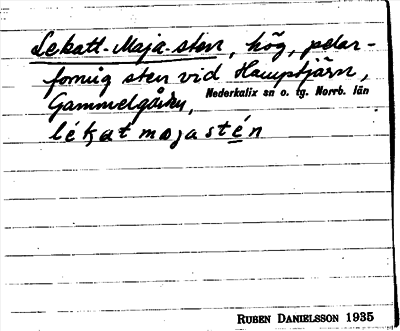 Lekatt-Maja-sten, hög, pelar-
formig sten vid Hamptjärn,
Gammelgården, Nederkalix sn o. tg. Norrb. län
lékat majastén
RUBEN DANIELSSON 1935